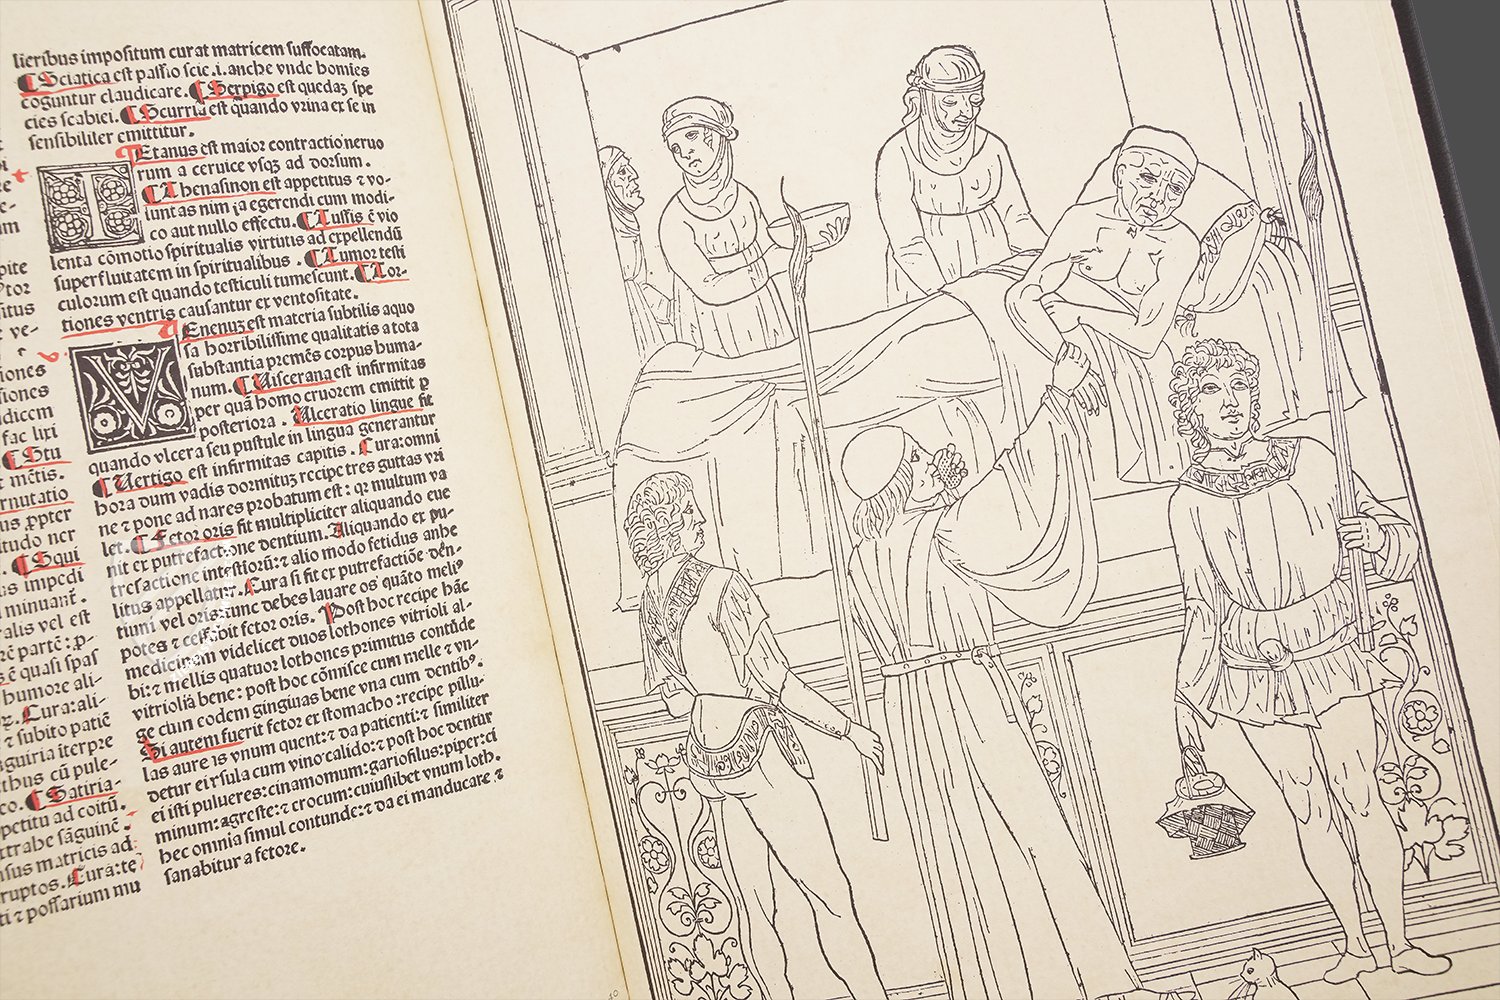 lieribus impositum curat matricem suffocatam.
¶ Sciatica est passio scie .i. anche vnde homies
coguntur claudicare. ¶ Serpigo est quedaz spe
cies scabiei. ¶ Scurria est quando vrina ex se in
sensibiliter emittitur.
¶ Tetanus est maior contractio neruo
rum a ceruice vsqz ad dorsum.
¶ Thenasmon est appetitus ⁊ vo-
luntas nimia egerendi cum modi-
co aut nullo effectu. ¶ Tussis ē vio
lenta cōmotio spiritualis virtutis ad expellendū
superfluitatem in spiritualibus. ¶ Tumor testi
culorum est quando testiculi tumescunt. ¶ Tor-
tiones ventris causantur ex ventositate.
¶ Venenuz est materia subtilis a quo
sa horribilissime qualitatis a tota
substantia premēs corpus huma-
num. ¶ Viscerana est infirmitas
per quā homo cruorem emittit p
posteriora. Ulceratio lingue fit
quando vlcera seu pustule in lingua generantur
¶ Uertigo est infirmitas capitis. Cura: omni
hora dum vadis dormituz recipe tres guttas vri
ne ⁊ pone ad nares probatum est: qz multum va
let. ¶ Fetor oris fit multipliciter aliquando eue
nit ex putrefactione dentium. Aliquando ex pu-
trefactione intestiorū: ⁊ alio modo fetidus anhe
litus appellatur. Cura si fit ex putrefactiōe dēn-
tium vel oris tunc debes lauare os quāto meliꝰ
potes ⁊ cessabit fetor oris. Post hoc recipe hāc
medicinam videlicet duos lothones vitrioli al-
bi: ⁊ mellis quatuor lothones primitus contūde
vitriolū bene: post hoc cōmisce cum melle ⁊ vn-
ge cum eodem gingiuas bene vna cum dentibꝰ.
Si autem fuerit fetor ex stomacho: recipe pillu-
las aureas vnum quent: ⁊ da patienti: ⁊ similiter
detur ei rsula cum vino calido: ⁊ post hoc dentur
ei isti pulueres: cinamomum: gariofilus: piper: ci
minum: agreste: ⁊ crocum: cuiuslibet vnum loth.
hec omnia simul contunde: ⁊ da ei manducare ⁊
sanabitur a fetore.